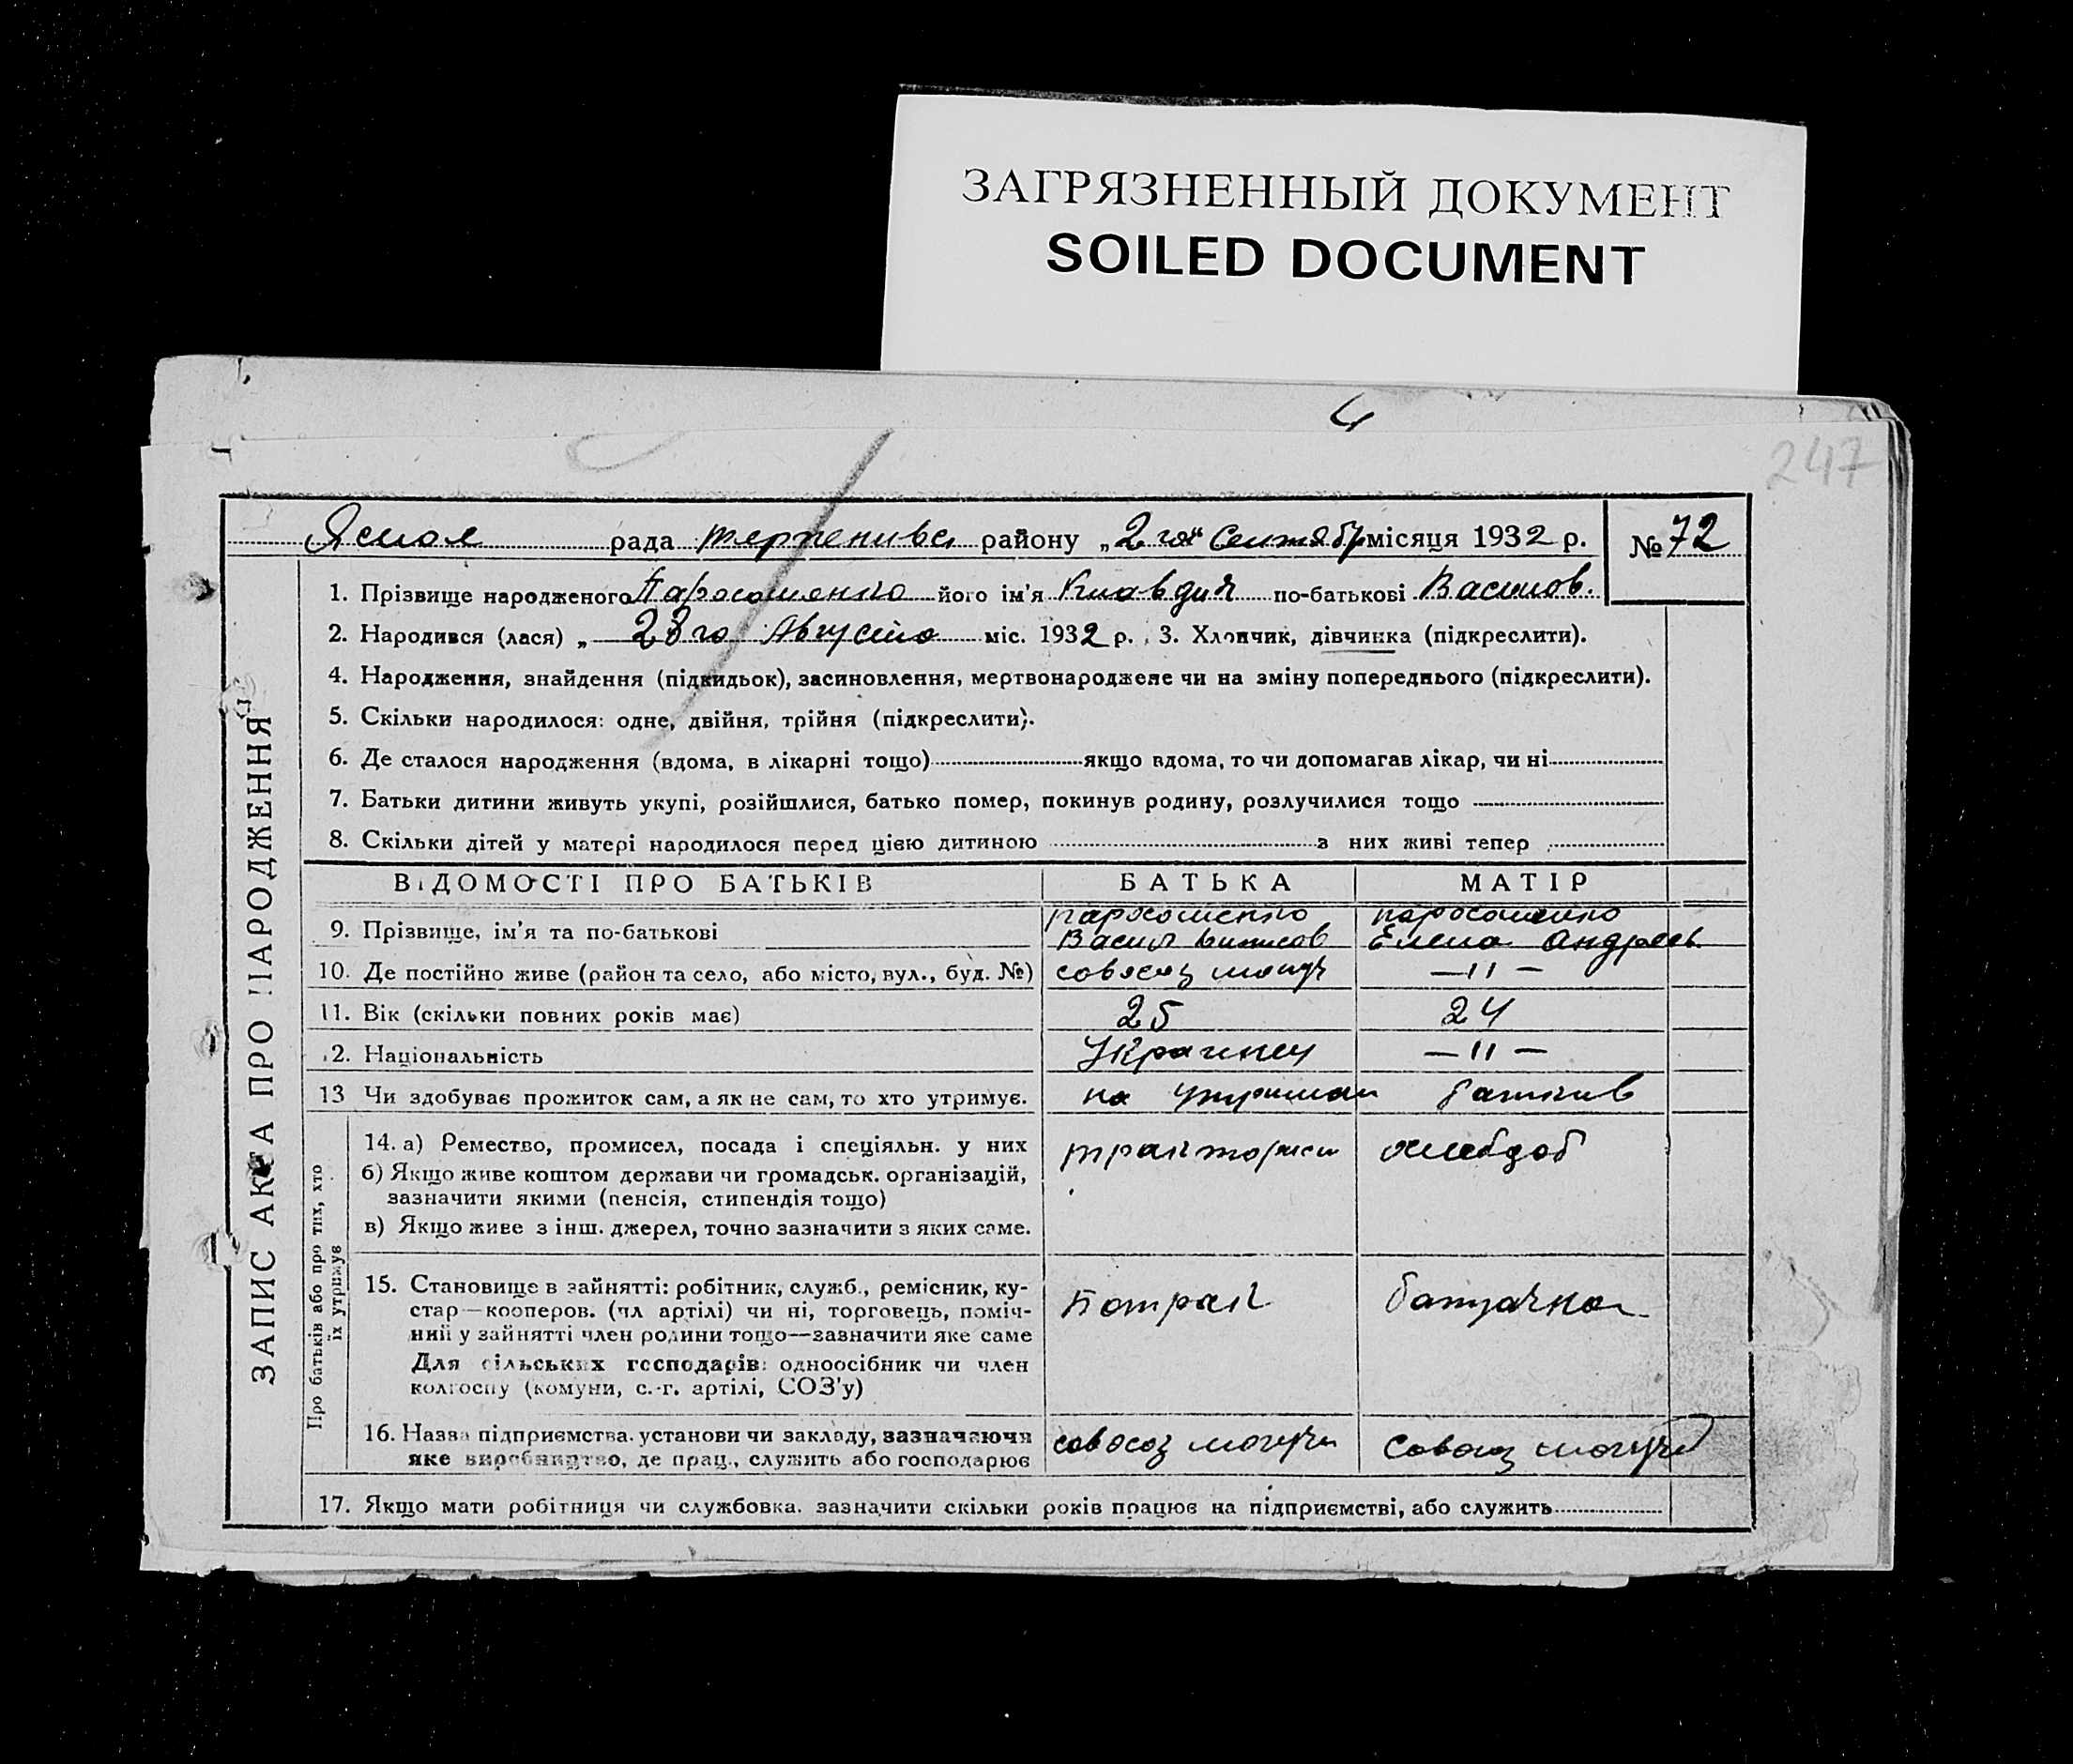 ЗАГРЯЗНЕННЫЙ ДОКУМЕНТ
SOILED DOCUMENT
247
рада района району „2го" Сентябр місяця 1932 р. №72
1. Прізвище народженого його ім'я Клавдия по-батькові Васильов.
2. Народився (лася) „ 28го Августа міс. 1932 р. 3. Хлопчик, дівчинка (підкреслити).
4. Народження, знайдення (підкидьок), засиновлення, мертвонароджене чи на зміну попереднього (підкреслити).
5. Скільки народилося: одне, двійня, трійня (підкреслити).
6. Де сталося народження (вдома, в лікарні тощо) якщо вдома, то чи допомагав лікар, чи ні
7. Батьки дитини живуть укупі, розійшлися, батько помер, покинув родину, розлучилися тощо
8. Скільки дітей у матері народилося перед цією дитиною з них живі тепер
ЗАПИС АКТА ПРО НАРОДЖЕННЯ
ВІДОМОСТІ ПРО БАТЬКІВ БАТЬКА МАТІР
9. Прізвище, ім'я та по-батькові Васил Елена Андреев.
10. Де постійно живе (район та село, або місто, вул., буд. №) совхоз —"—
11. Вік (скільки повних років має) 25 24
12. Національність Украинец —"—
13 Чи здобуває прожиток сам, а як не сам, то хто утримує. на утриман батьків
Про батьків або про тих, хто їх утримує
14. а) Ремество, промисел, посада і спеціяльн. у них тракторист
б) Якщо живе коштом держави чи громадськ. організацій,
зазначити якими (пенсія, стипендія тощо)
в) Якщо живе з інш. джерел, точно зазначити з яких саме.
15. Становище в зайнятті: робітник, служб., ремісник, ку-
стар—кооперов. (чл артілі) чи ні, торговець, поміч-
ний у зайнятті член родини тощо—зазначити яке саме
Для сільських господарів: одноосібник чи член
колгоспу (комуни, с.-г. артілі, СОЗ'у)
16. Назва підприємства, установи чи закладу, зазначаючи
яке виробництво, де прац., служить або господарює
17. Якщо мати робітниця чи службовка, зазначити скільки років працює на підприємстві, або служить